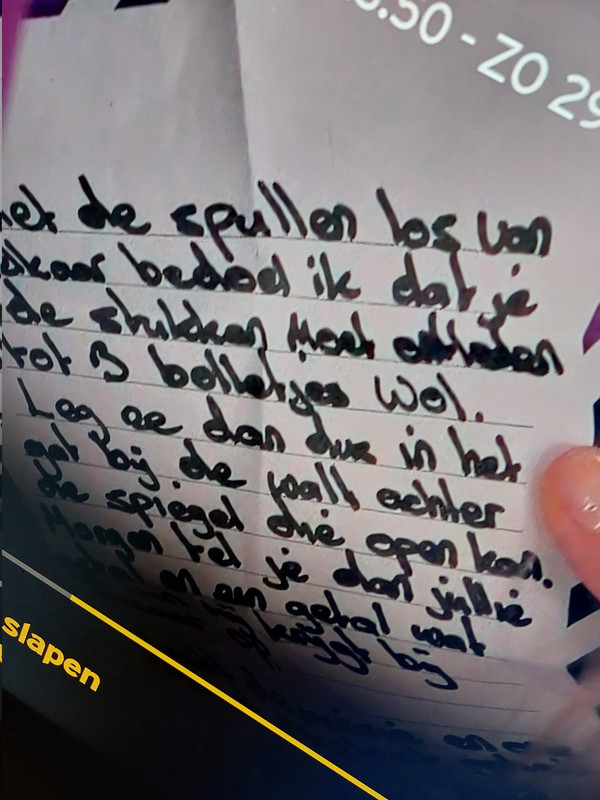 .50 - ZO 29
de spullen los van
bedoel ik dat je
de stukken moet
tot 3 bolletjes wol.
Leg ze dan dus in het
gat bij de wall achter
de spiegel die open kan.
Morgen tel je dan jullie
en een getal wat
krijgt bij
slapen